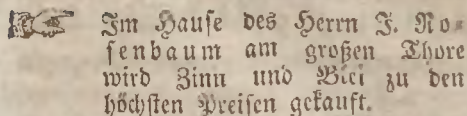 Im Hause des Herrn J. Ro-
senbaum am großen Thore
wird Zinn und Blei zu den
höchsten Preisen gekauft.